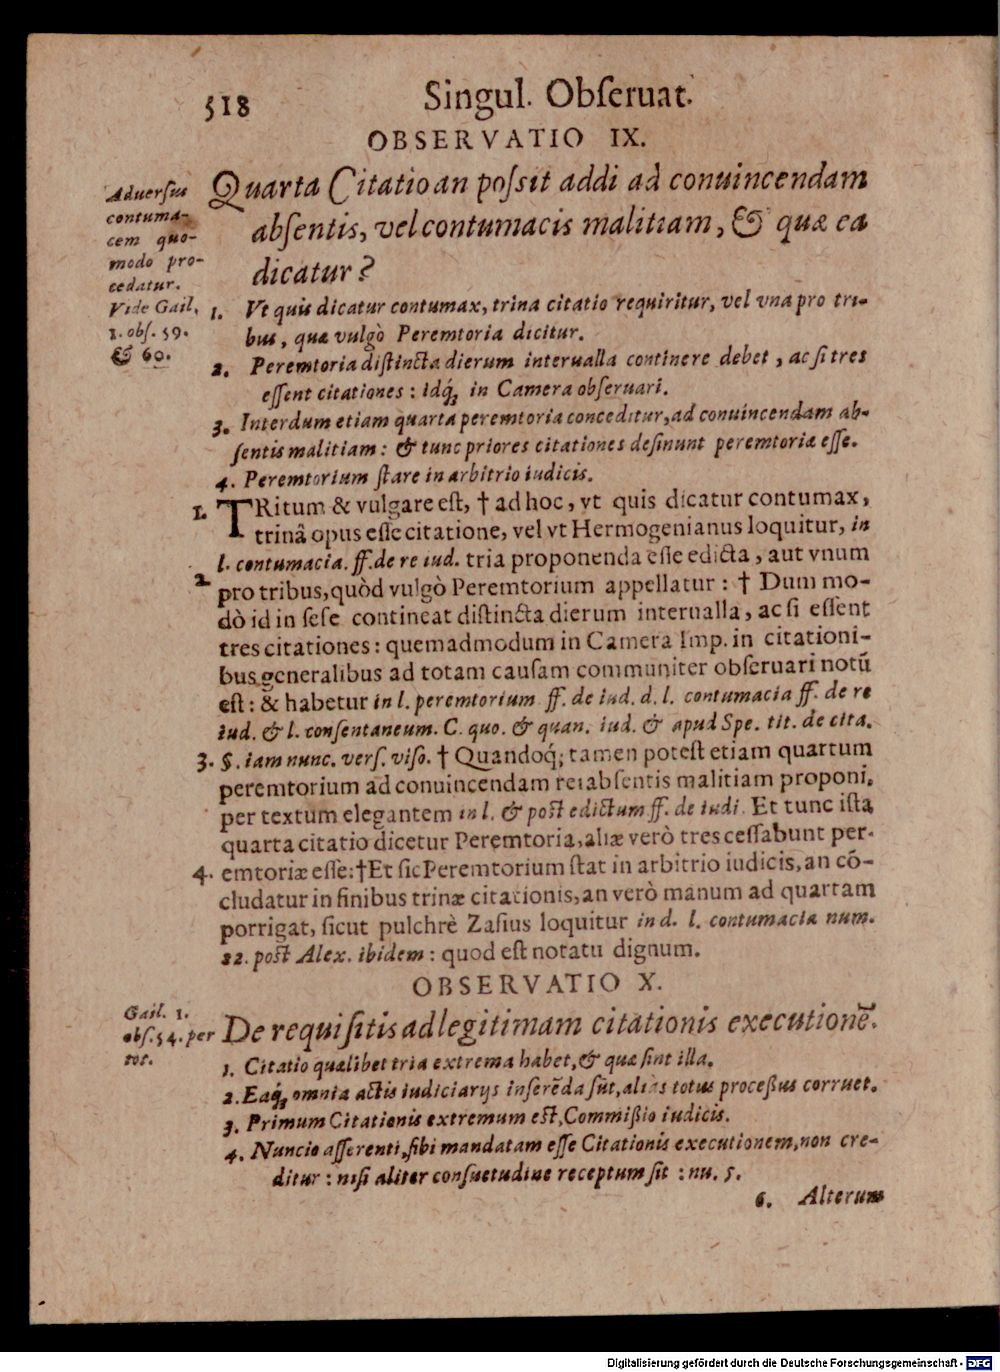 518
Singul. Obſeruat.
OBSERVATIO IX.
Aduerſus
contuma-
cem quo-
modo pro-
cedatur.
Vide Gail,
1. obſ. 59.
& 60.
Quarta Citatio an poſsit addi ad conuincendam
abſentis, vel contumacis malitiam, & quæ ea
dicatur?
1. Vt quis dicatur contumax, trina citatio requiritur, vel vna pro tri-
bus, quæ vulgò Peremtoria dicitur.
2. Peremtoria diſtincta dierum interualla continere debet, ac ſi tres
eſſent citationes: idq́; in Camera obſeruari.
3. Interdum etiam quarta peremtoria conceditur, ad conuincendam ab-
ſentis malitiam: & tunc priores citationes deſinunt peremtoriæ eſſe.
4. Peremtorium ſtare in arbitrio iudicis.
1. TRitum & vulgare eſt, † ad hoc, vt quis dicatur contumax,
trinâ opus eſſe citatione, vel vt Hermogenianus loquitur, in
l. contumacia. ff. de re iud. tria proponenda eſſe edicta, aut vnum
2 pro tribus, quòd vulgò Peremtorium appellatur: † Dum mo-
dò id in ſeſe contineat diſtincta dierum interualla, ac ſi eſſent
tres citationes: quemadmodum in Camera Imp. in citationi-
bus generalibus ad totam cauſam communiter obſeruari notū
eſt: & habetur in l. peremtorium ff. de iud. d. l. contumacia ff. de re
iud. & l. conſentaneum. C. quo. & quan. iud. & apud Spe. tit. de cita.
3. §. iam nunc. verſ. viſo. † Quandoq́; tamen poteſt etiam quartum
peremtorium ad conuincendam rei abſentis malitiam proponi,
per textum elegantem in l. & poſt edictum ff. de iudi. Et tunc iſta
quarta citatio dicetur Peremtoria, aliæ verò tres ceſſabunt per-
4. emtoriæ eſſe: † Et ſic Peremtorium ſtat in arbitrio iudicis, an cō-
cludatur in finibus trinæ citationis, an verò manum ad quartam
porrigat, ſicut pulchrè Zaſius loquitur in d. l. contumacia num.
22. poſt Alex. ibidem: quod eſt notatu dignum.
OBSERVATIO X.
Gail. 1.
obſ. 54. per
tot.
De requiſitis ad legitimam citationis executionē.
1. Citatio quælibet tria extrema habet, & quæ ſint illa.
2. Eaq́; omnia actis iudiciarijs inſerēda ſūt, aliàs totus proceſſus corruet.
3. Primum Citationis extremum eſt, Commiſsio iudicis.
4. Nuncio aſſerenti, ſibi mandatam eſſe Citationis executionem, non cre-
ditur: niſi aliter conſuetudine receptum ſit: nu. 5.
6. Alterum
Digitalisierung gefördert durch die Deutsche Forschungsgemeinschaft - DFG